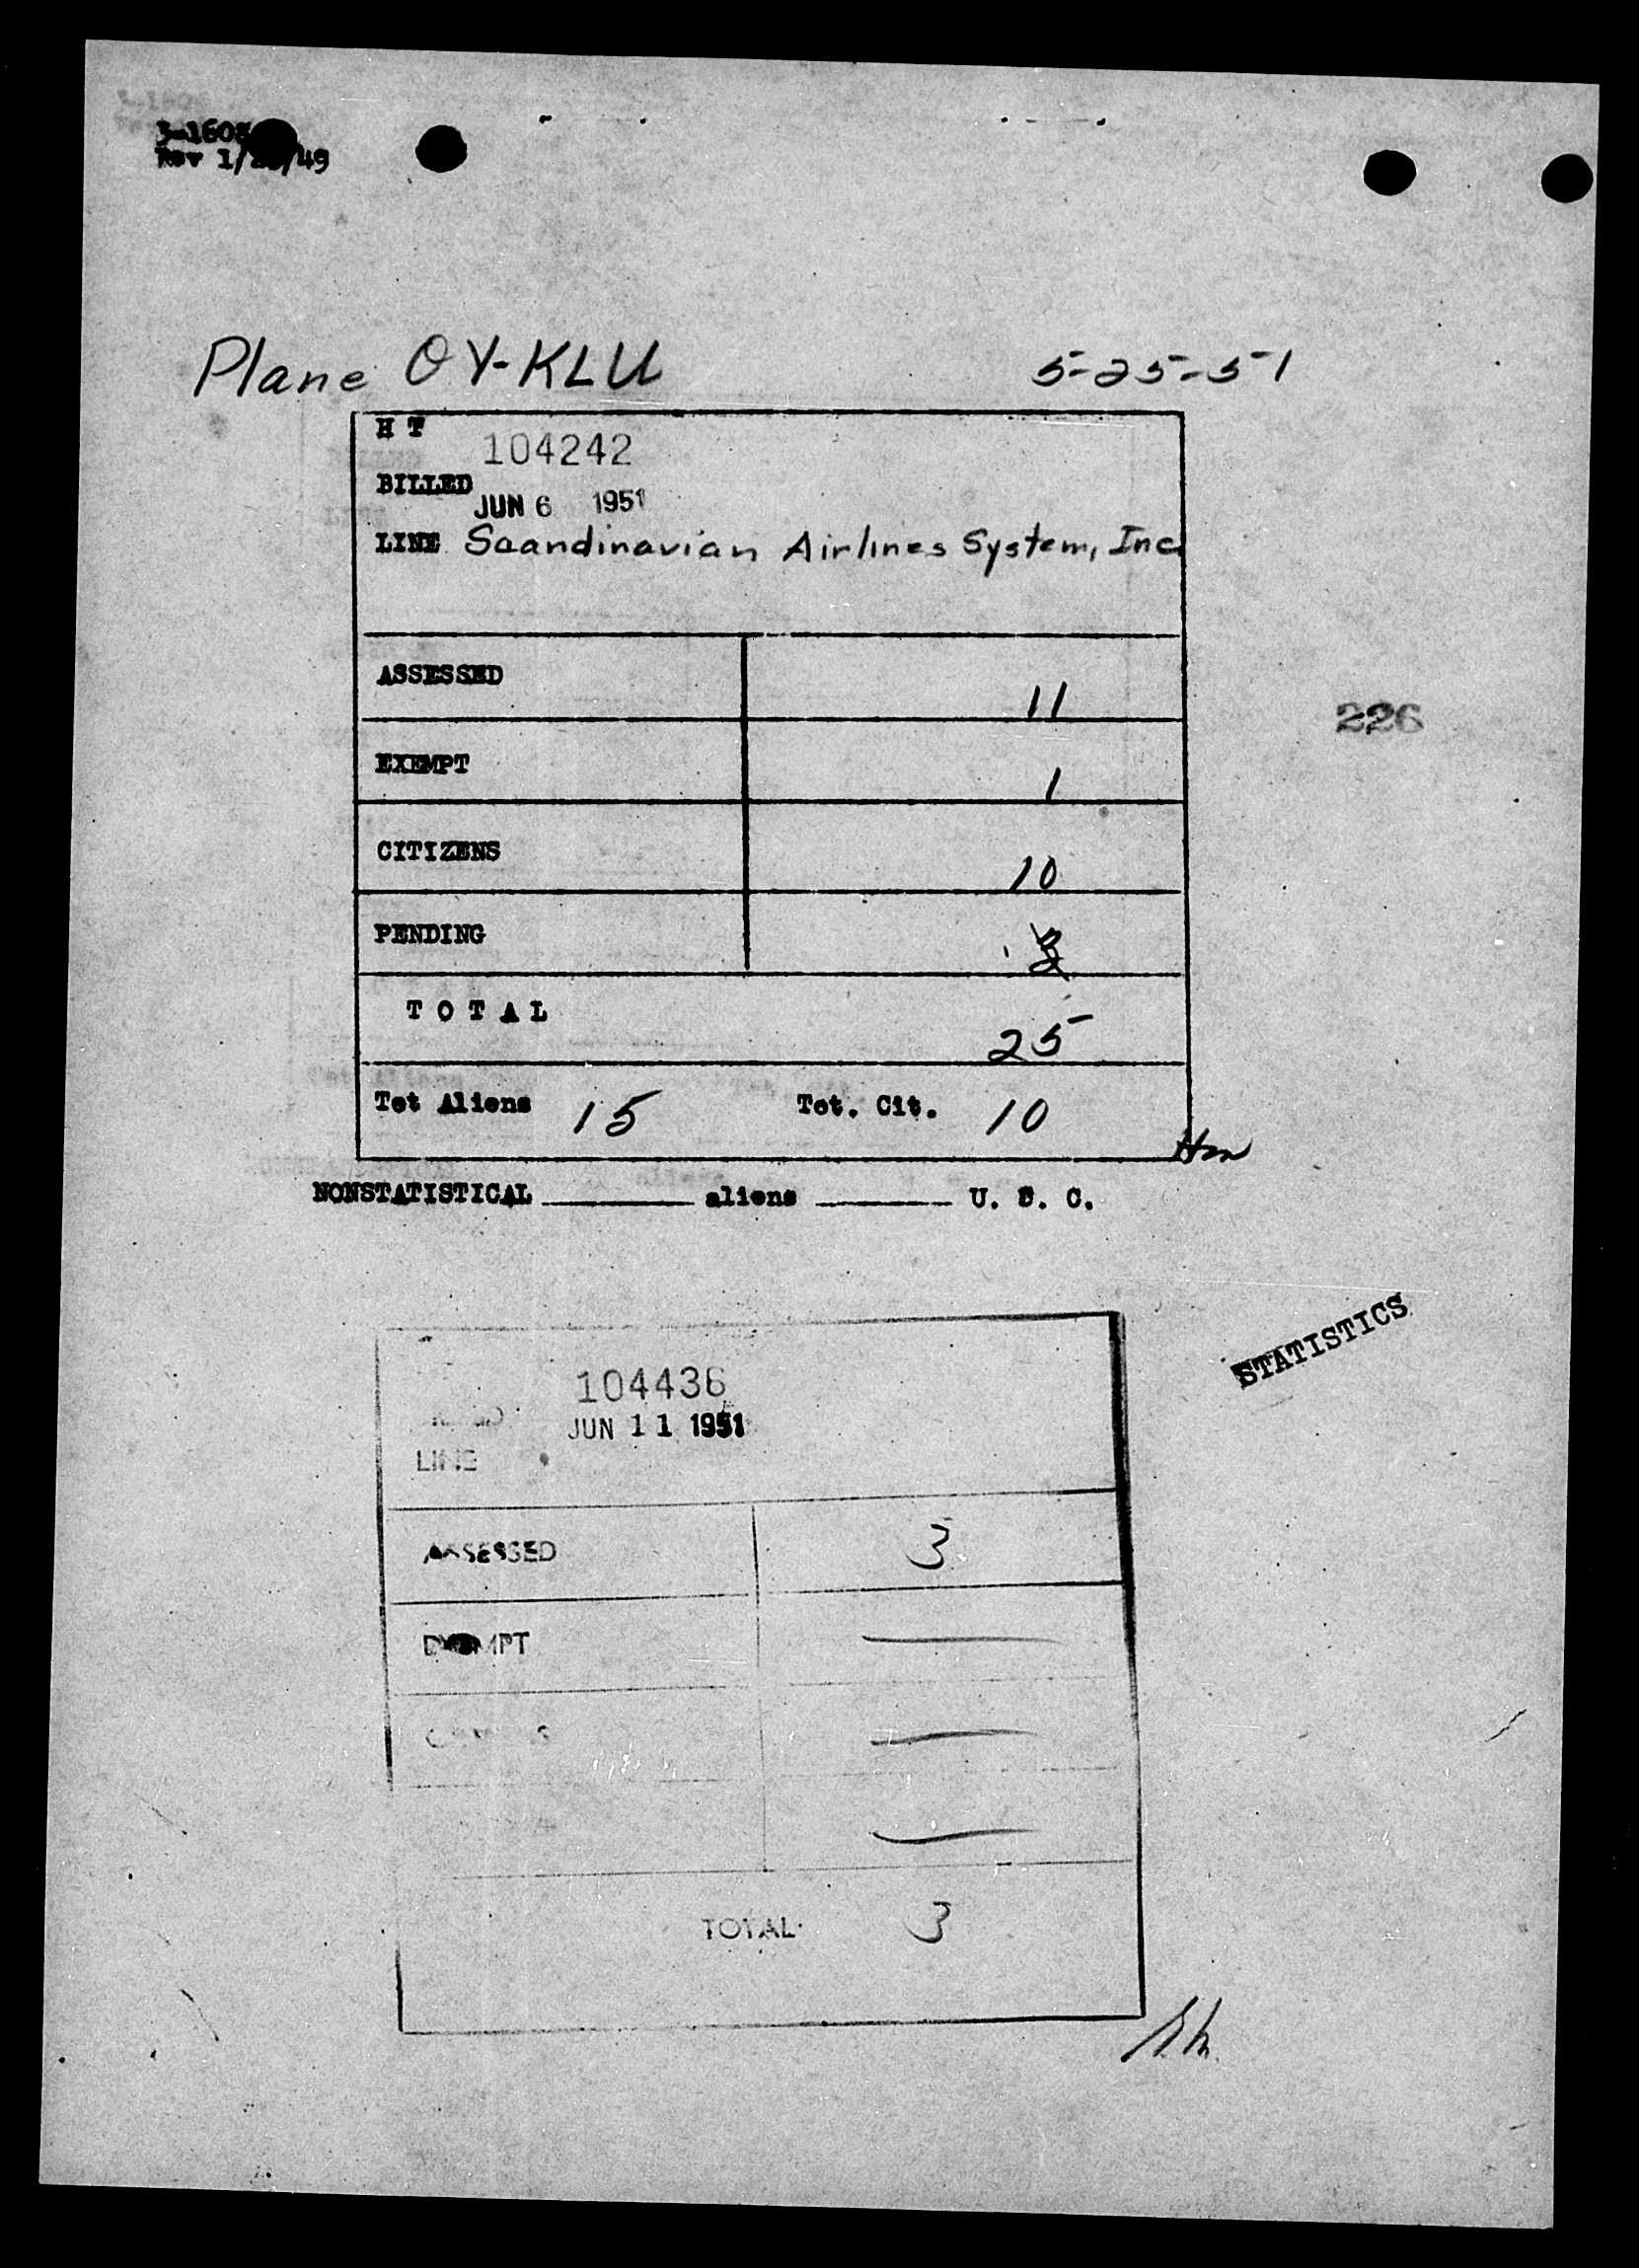 Plane OY-KLU 5-25-51
H T
104242
BILLED
JUN 6 1951
LINE Scandinavian Airlines System, Inc.
ASSESSED 11
226
EXEMPT 1
CITIZENS 10
PENDING 3
T O T A L 25
Tot Aliens 15 Tot. Cit. 10
NONSTATISTICAL ______ aliens ______ U. S. C.
STATISTICS
104436
JUN 11 1951
LINE
ASSESSED 3
EXEMPT —
—
—
TOTAL 3